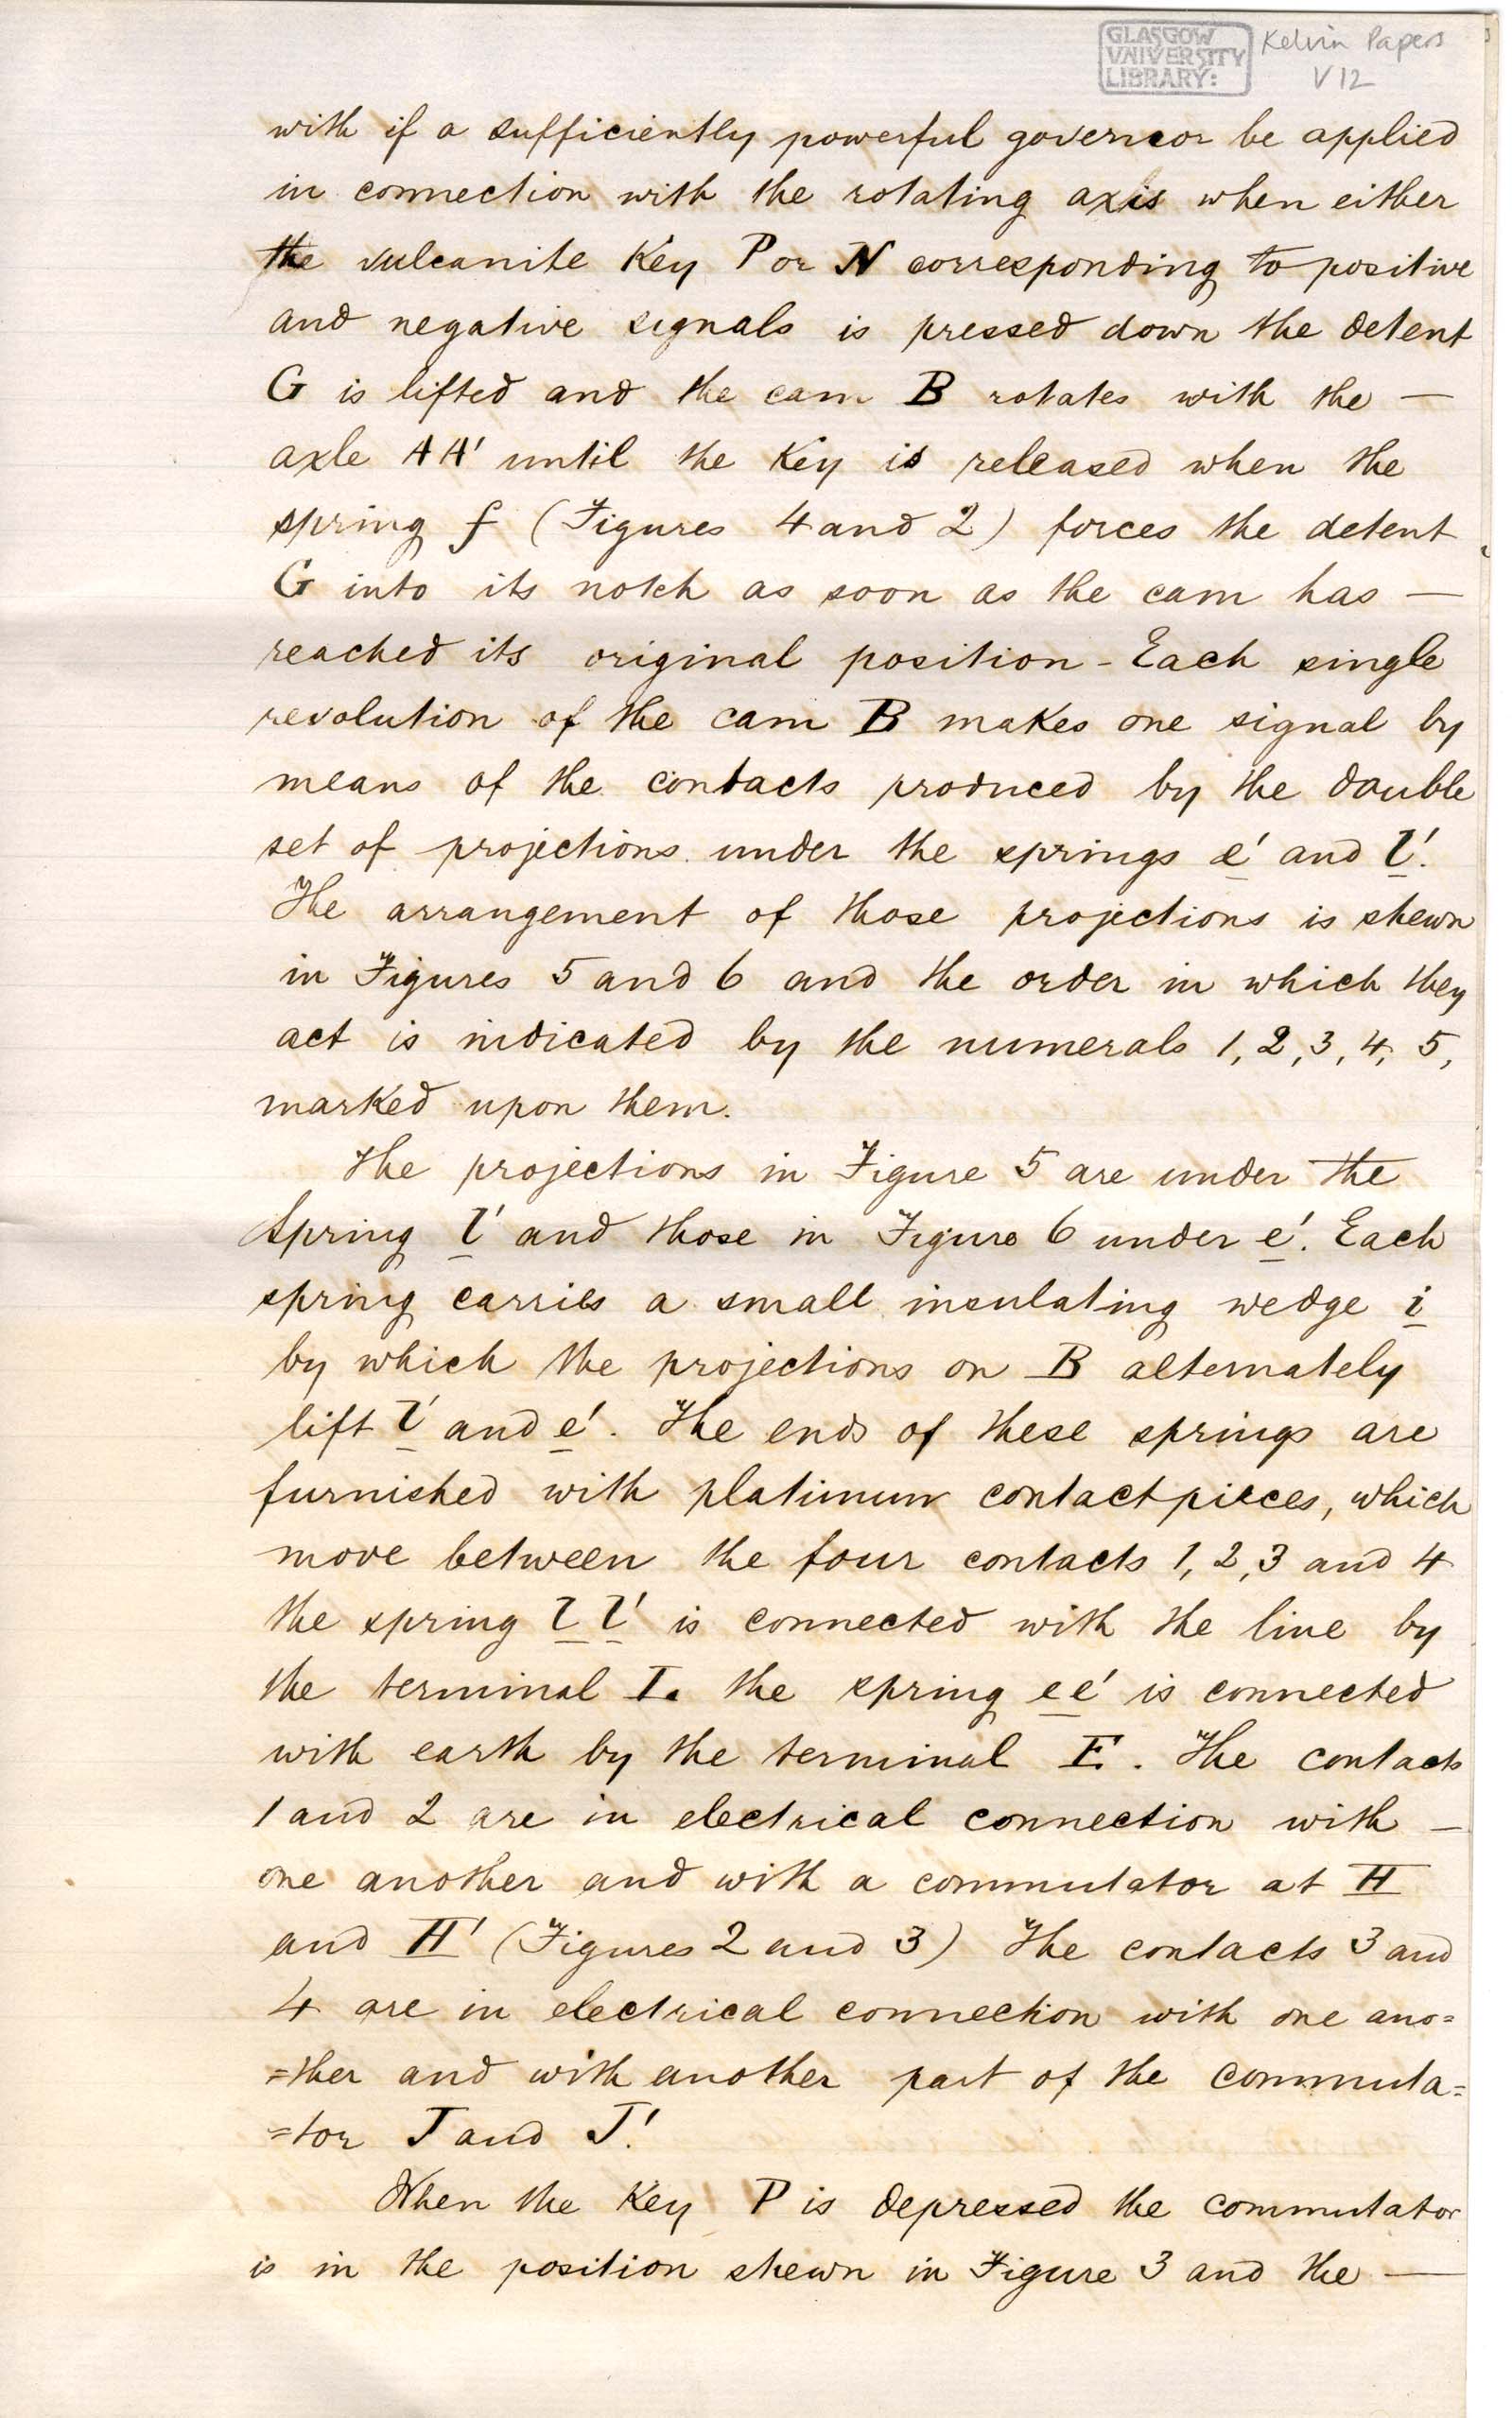 GLASGOW
UNIVERSITY
LIBRARY:
Kelvin Papers
V12
with if a sufficiently powerful governor be applied
in connection with the rotating axis when either
the vulcanite Key P or N corresponding to positive
and negative signals is pressed down the detent
G is lifted and the cam B rotates with the —
axle AA' until the Key is released when the
spring f (Figures 4 and 2) forces the detent
G into its notch as soon as the cam has —
reached its original position - Each single
revolution of the cam B makes one signal by
means of the contacts produced by the double
set of projections under the springs e' and l'.
The arrangement of those projections is shewn
in Figures 5 and 6 and the order in which they
act is indicated by the numerals 1, 2, 3, 4, 5,
marked upon them.
The projections in Figure 5 are under the
Spring l' and those in Figure 6 under e'. Each
spring carries a small insulating wedge i
by which the projections on B alternately
lift l' and e'. The ends of these springs are
furnished with platinum contact pieces, which
move between the four contacts 1, 2, 3 and 4
the spring l l' is connected with the line by
the terminal L. the spring e e' is connected
with earth by the terminal E. The contacts
1 and 2 are in electrical connection with —
one another and with a commutator at H
and H' (Figures 2 and 3) The contacts 3 and
4 are in electrical connection with one ano=
=ther and with another part of the commuta=
=tor J and J'.
When the Key P is depressed the commutator
is in the position shewn in Figure 3 and the —